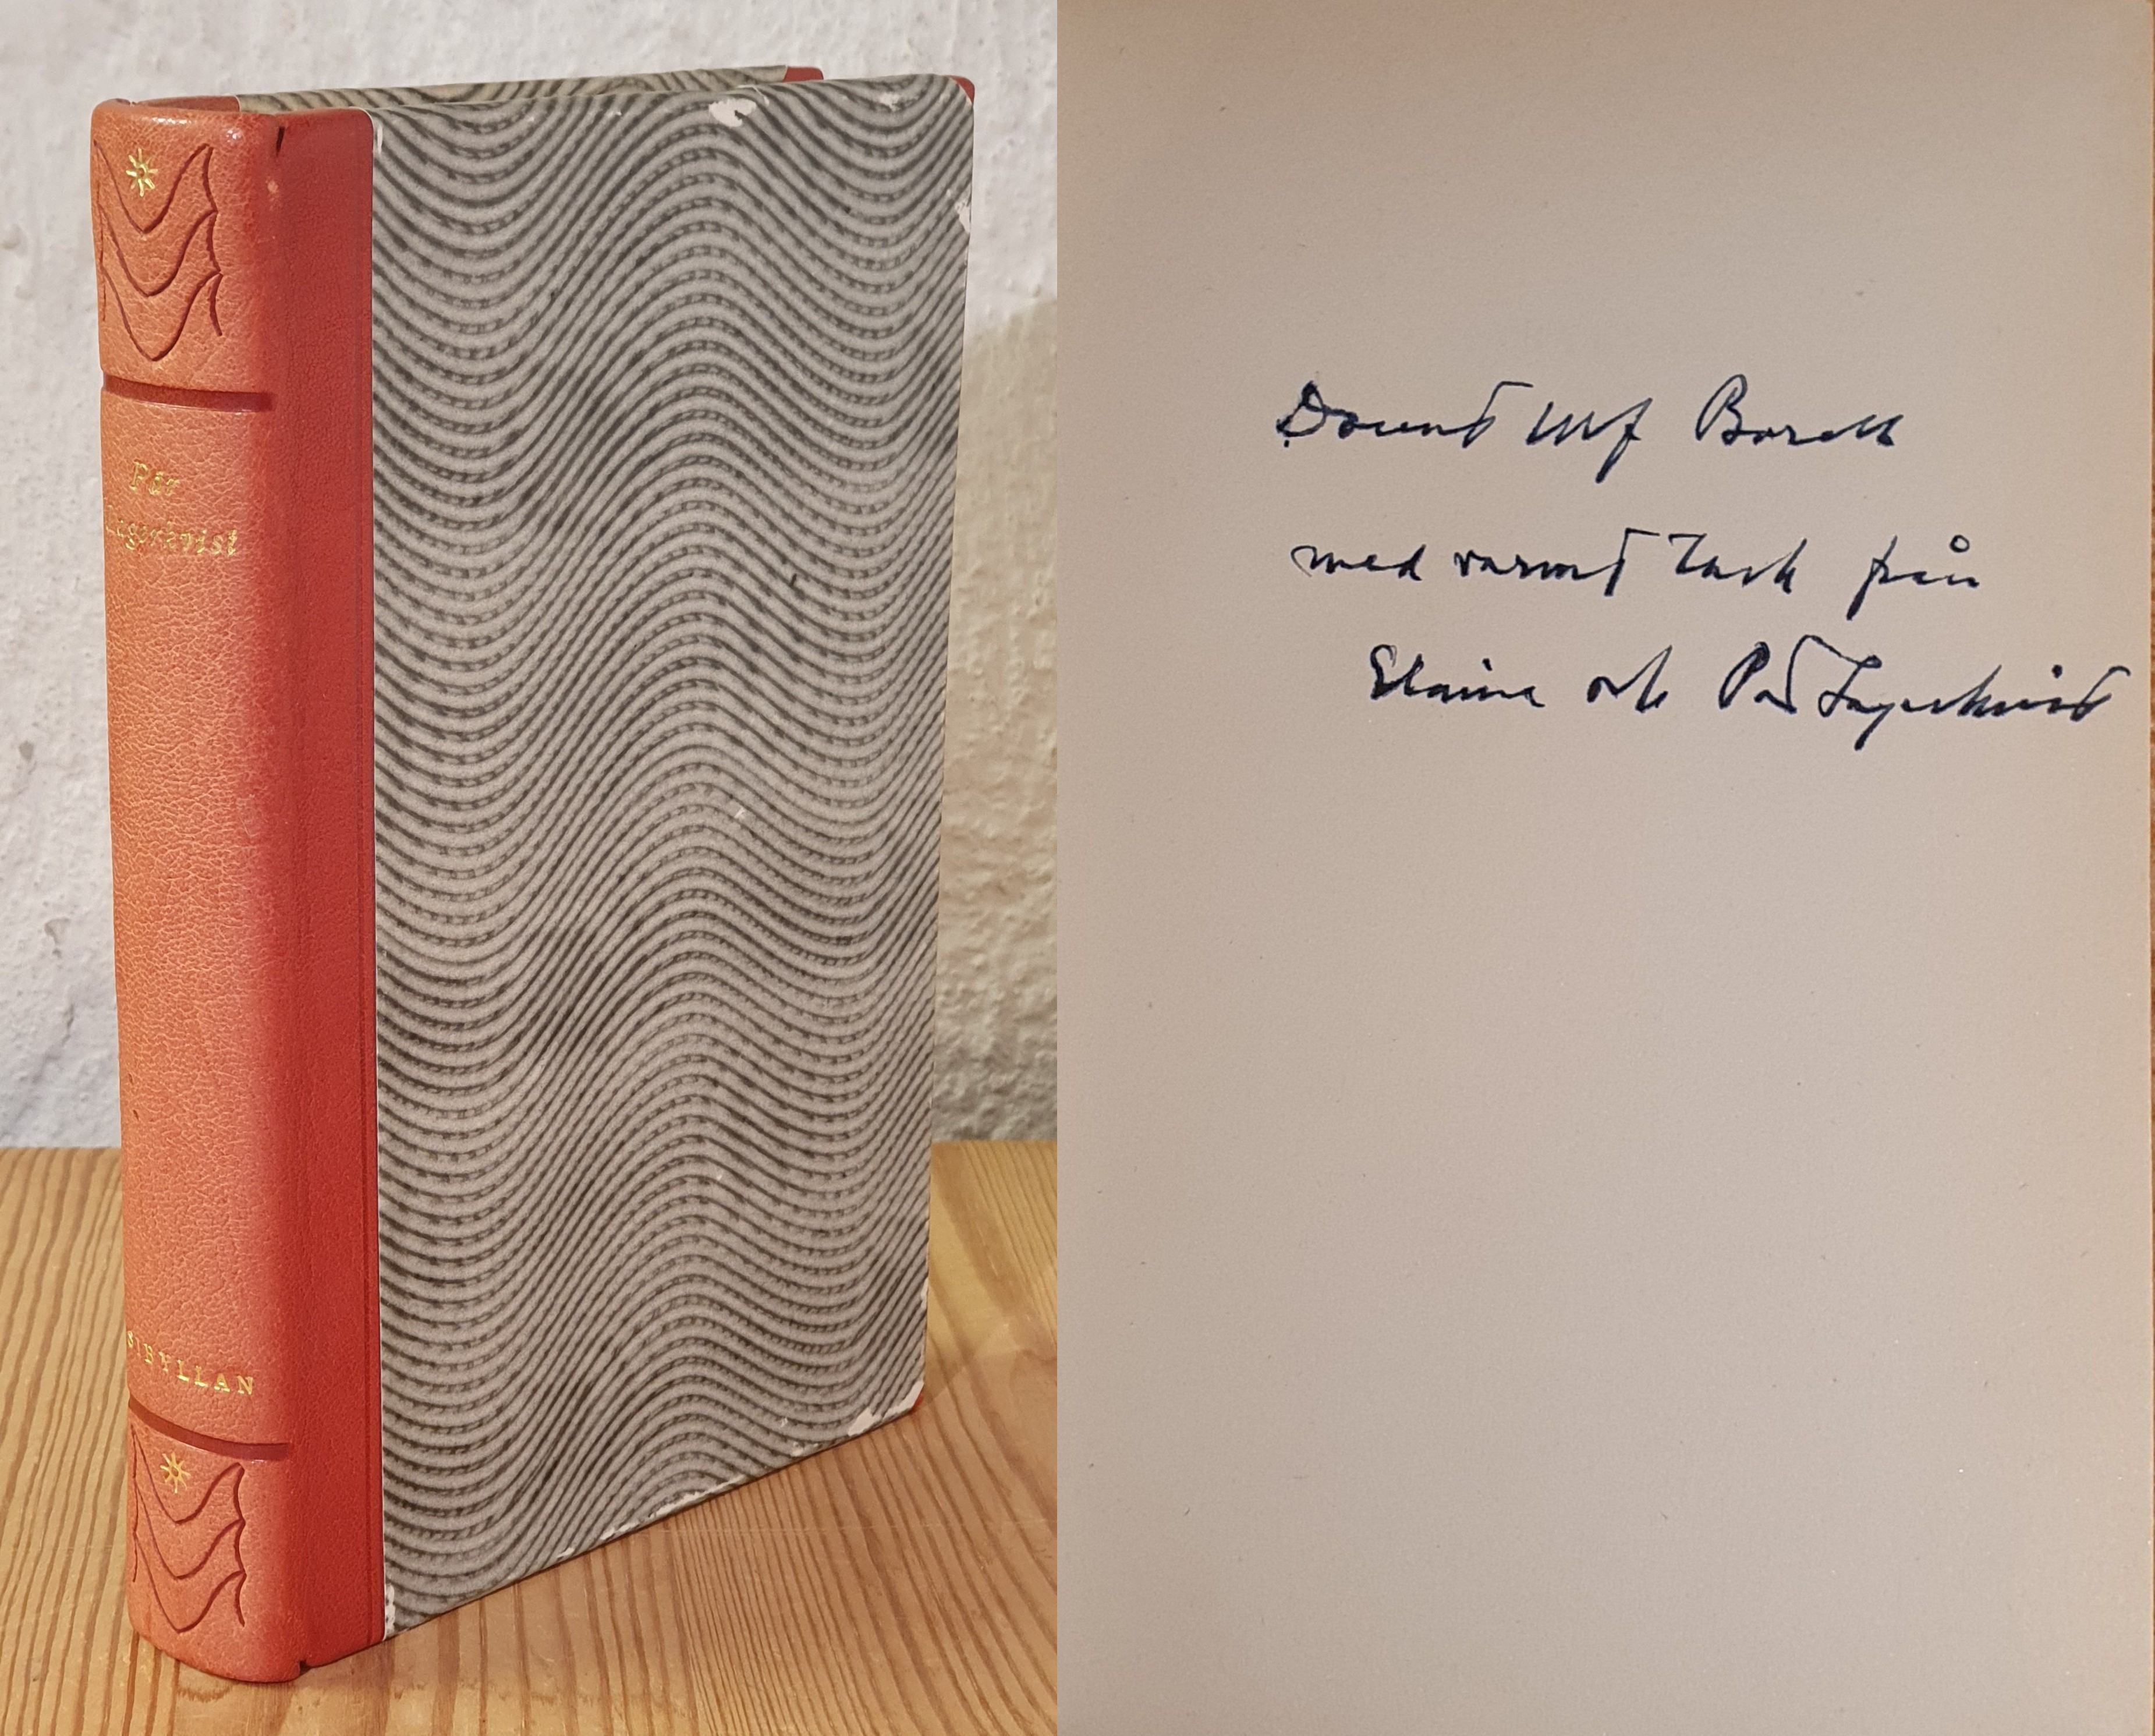 Pär
Lagerkvist
SIBYLLAN
Docent Ulf Borell
med varmt tack från
Elaine och Pär Lagerkvist